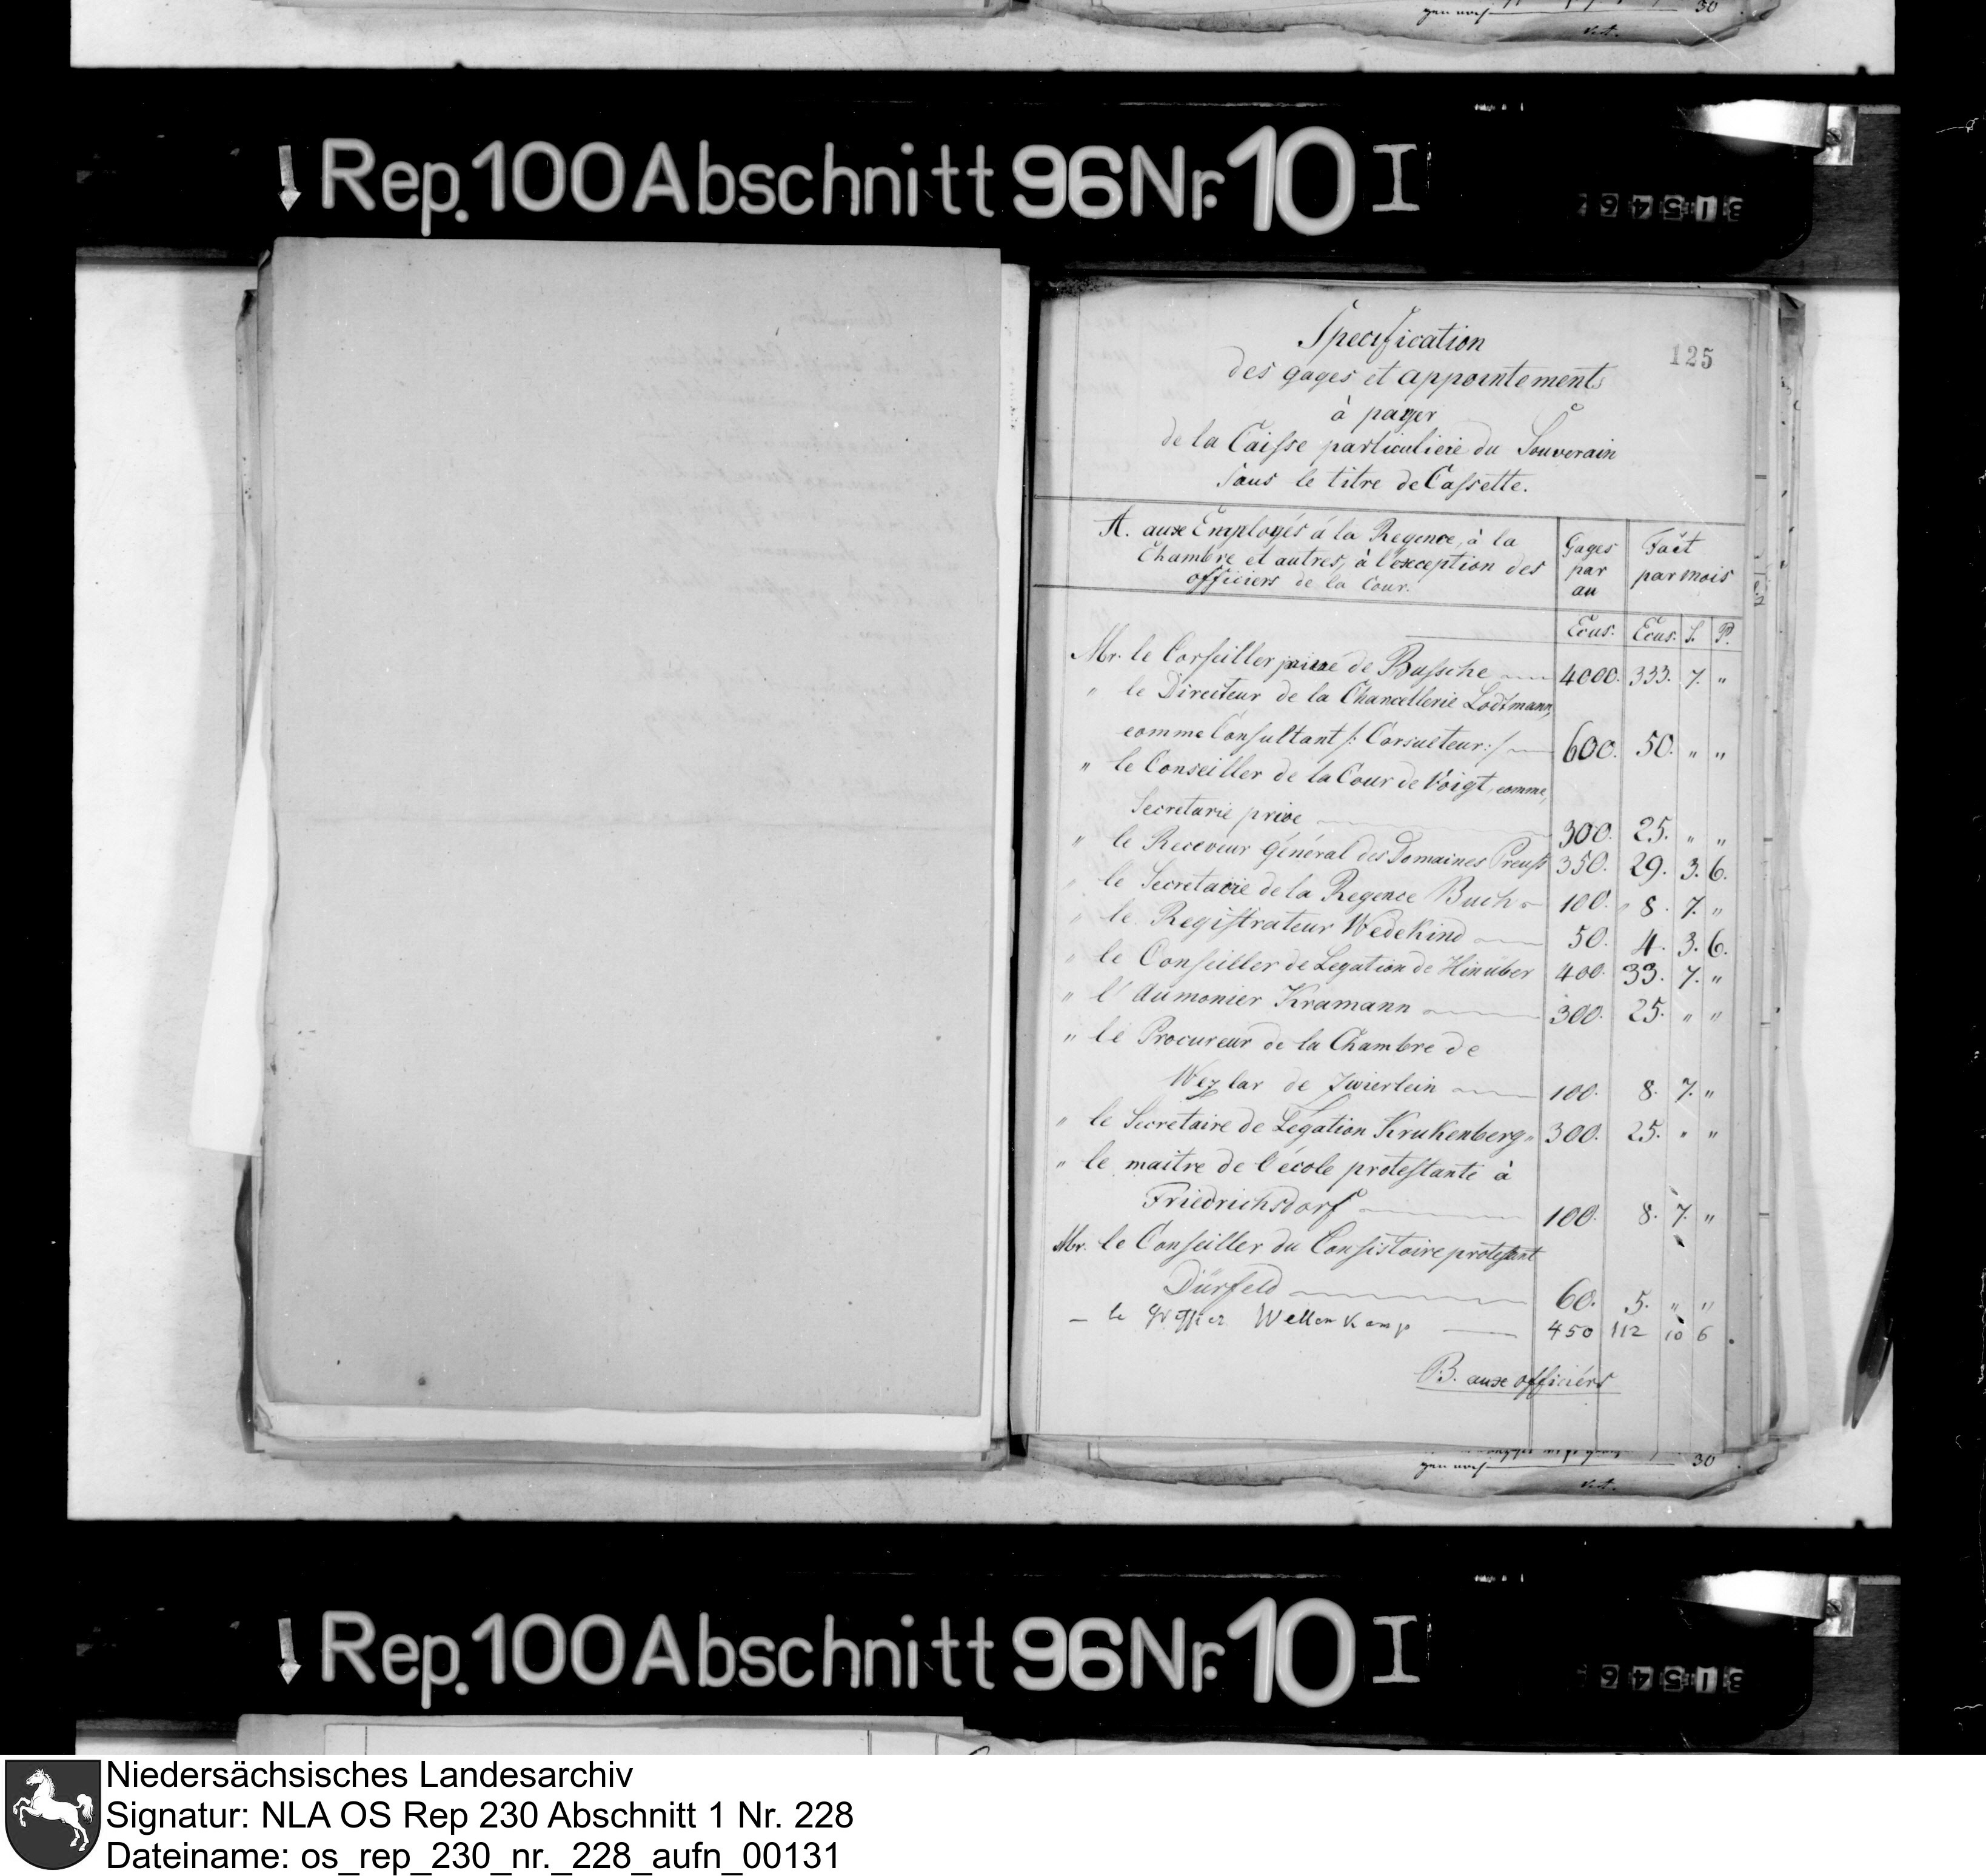 ↓ Rep. 100 Abschnitt 96 Nr. 10 I
125
Specification
des gages et appointements
à payer
de la Caisse particuliere du Souverain
sous le titre de Cassette.
A. aux Employés à la Regence, à la
Chambre et autres, à l'exception des
officiers de la Cour.
Gages par an
Fait par mois
Ecus. Ecus. S. P.
Mr. le Conseiller privé de Bussche 4000. 333. 7. "
" le Directeur de la Chancellerie Lodtmann,
comme Consultant /: Consulteur :/ 600. 50. " "
" le Conseiller de la Cour de Voigt, comme,
Secretarie privé 300. 25. " "
" le Receveur Général des Domaines Preuss 350. 29. 3. 6.
" le Secretarie de la Regence Buch 100. 8. 7. "
" le Registrateur Wedekind 50. 4. 3. 6.
" le Conseiller de Legation de Hinüber 400. 33. 7. "
" l'Aumonier Kramann 300. 25. " "
" le Procureur de la Chambre de
Wezlar de Zwierlein 100. 8. 7. "
" le Secretaire de Légation Krukenberg 300. 25. " "
" le maître de l'école protestante à
Friedrichsdorf 100. 8. 7. "
Mr. le Conseiller du Consistoire protestant
Dürfeld 60. 5. " "
— le Greffier Wellenkamp 450 112 10 6
B. aux officiers
30
↓ Rep. 100 Abschnitt 96 Nr. 10 I
Niedersächsisches Landesarchiv
Signatur: NLA OS Rep 230 Abschnitt 1 Nr. 228
Dateiname: os_rep_230_nr._228_aufn_00131